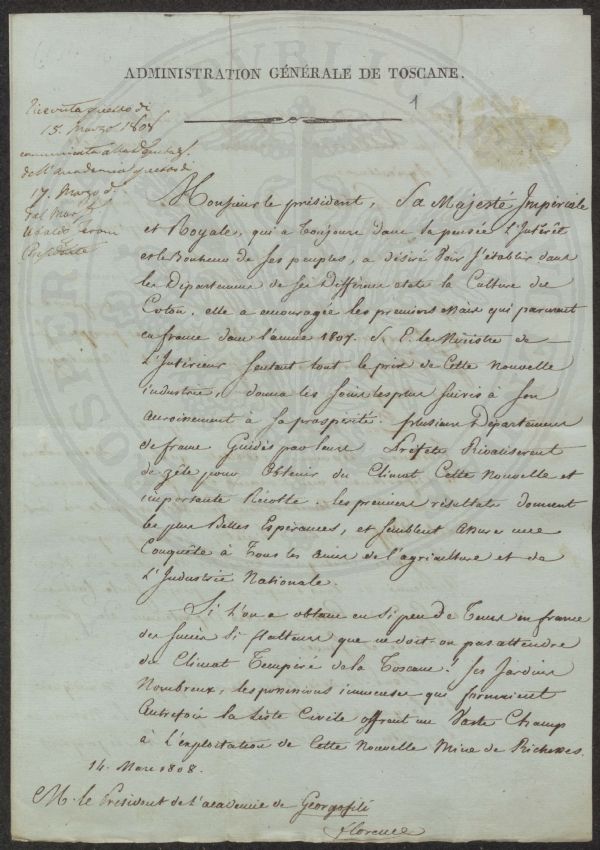 ADMINISTRATION GÉNÉRALE DE TOSCANE.
1
Ricevuta questo dì
15. Marzo 1808
comunicata
dell'Accademia questo dì
17. Marzo d.
Monsieur le président, Sa Majesté Impériale
et Royale, qui a toujours dans la pensée L'Intérêt
et le Bonheur de ses peuples, a désiré Voir s'établir dans
les Départemens de ses Différens états la Culture du
Coton, elle a encouragée les premiers essais qui parurent
en france dans l'année 1807. S. E. le Ministre de
L'Intérieur sentant tout le prix de Cette Nouvelle
industrie, donna les soins les plus suivis à son
accroissement à sa prospérité. plusieurs Départemens
de france Guidés par leurs Préfets Rivalisèrent
de zèle pour Obtenir du Climat Cette Nouvelle et
importante Récolte. les premiers résultats donnent
les plus Belles Espérances, et semblent assurer une
Conquête à Tous les amis de l'agriculture et de
L'Industrie Nationale.
Si l'on a obtenu en si peu De Tems en france
des succès si flatteurs que ne doit-on pas attendre
du Climat Tempéré de la Toscane! Ses Jardins
Nombreux, les possessions immenses qui formaient
Autrefois la Liste Civile offrent un Vaste Champ
à L'exploitation de Cette Nouvelle Mine de Richesses.
14. Mars 1808.
M. le Président de l'academie de Georgofili
florence